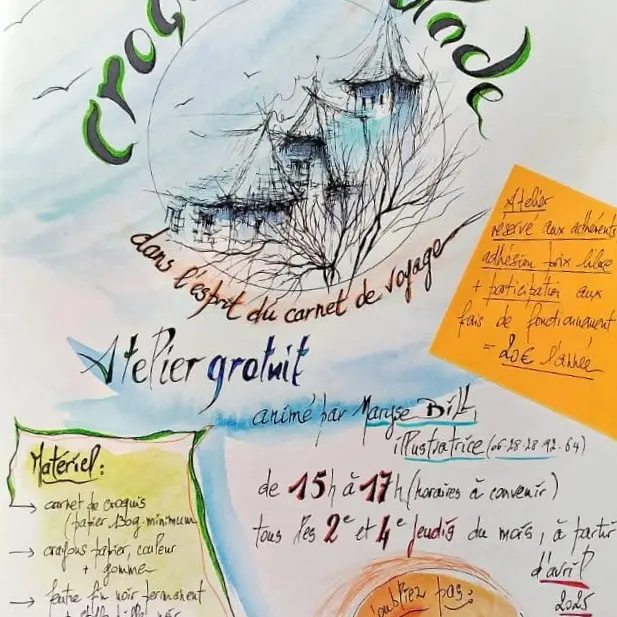 Croqu
lade
dans l'esprit du carnet de voyage
Atelier
réservé aux adhérents
adhésion prix libre
+ participation aux
frais de fonctionnement
= 20€ l'année
Atelier gratuit
animé par Maryse
illustratrice (06-28-28-92-64)
de 15h à 17h (horaires à convenir)
tous les 2e et 4e jeudis du mois, à partir
d'avril
2025
Matériel:
→ carnet de croquis
(papier 130g minimum
→ crayons papier, couleur
+ gomme
→ feutre fin noir permanent
n'oubliez pas: